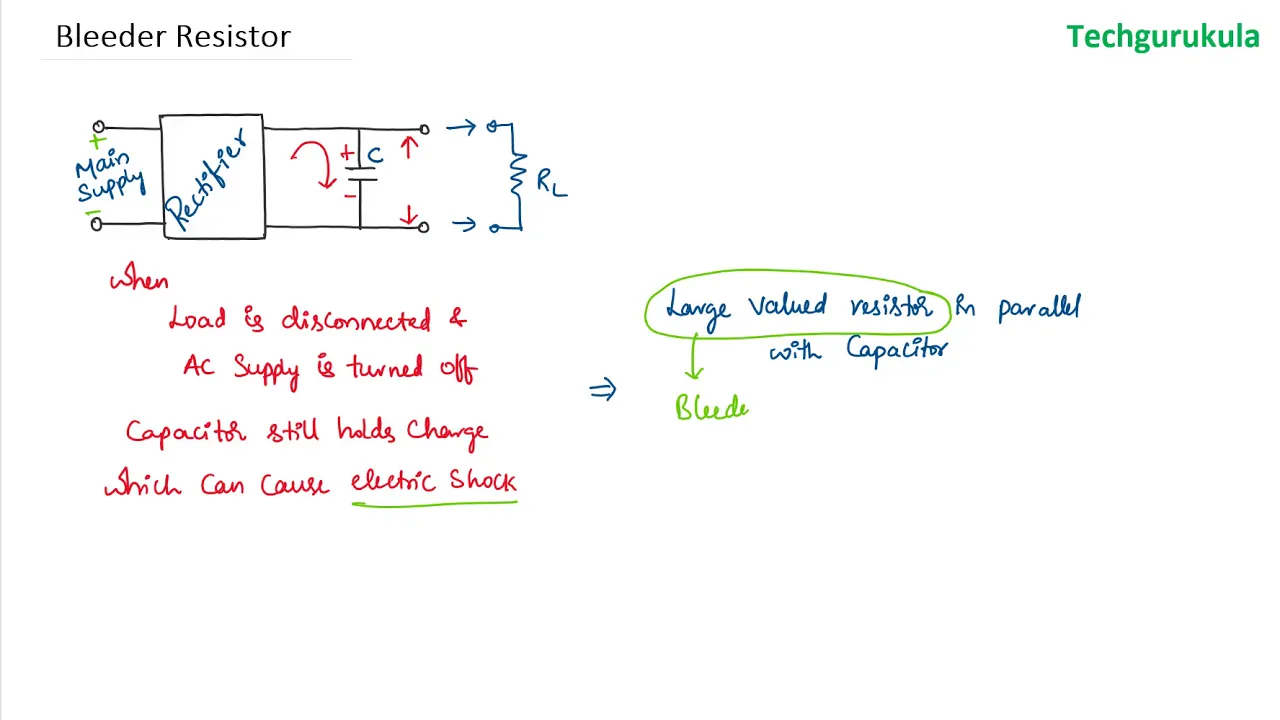 Bleeder Resistor
Techgurukula
+
Main
Supply
-
Rectifier
+
C
-
RL
When
Load is disconnected &
AC Supply is turned off
Capacitor still holds charge
which can cause electric shock
⇒
Large valued resistor in parallel
with Capacitor
Bleede